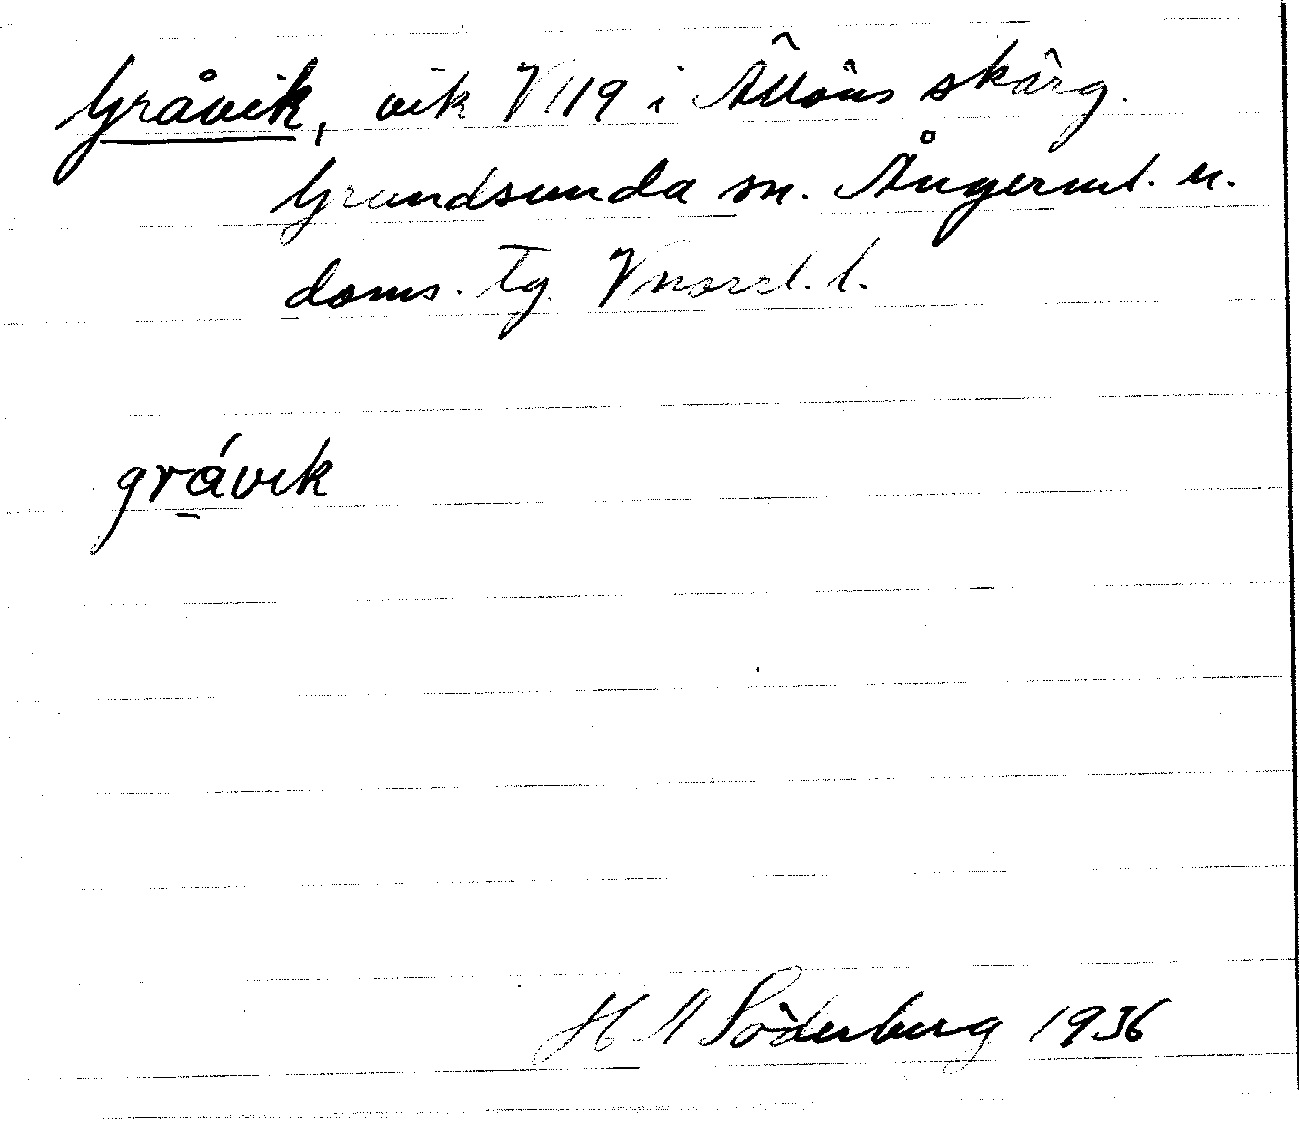 Gråvik, vik V 119 i Ällöns skärg.
Grundsunda sn. Ångerml. n.
doms. Tg. Vnorrl. l.
grávik
H A Söderberg 1936